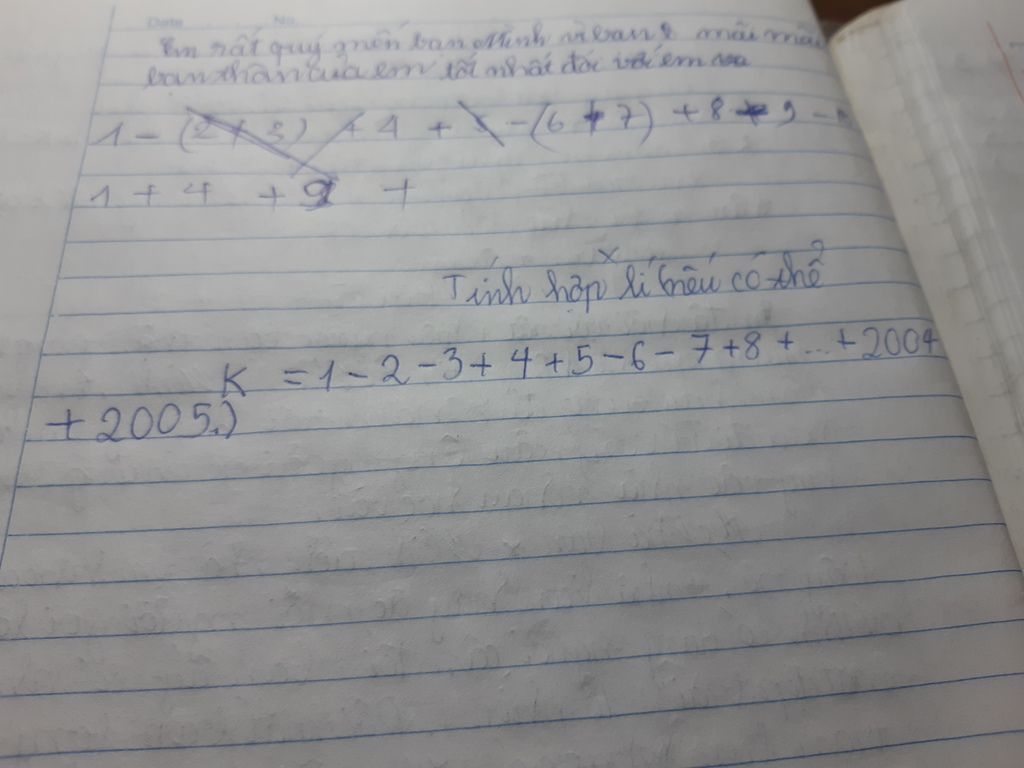 Date No.
Em rất quý mến bạn Minh vì bạn
bạn thân của em tốt nhất đối với em
1 - (2 + 3) + 4 + 5 - (6 + 7) + 8 + 9 -
1 + 4 + 9 +
Tính hợp lí nếu có thể
K = 1 - 2 - 3 + 4 + 5 - 6 - 7 + 8 + ... + 2004
+ 2005.)